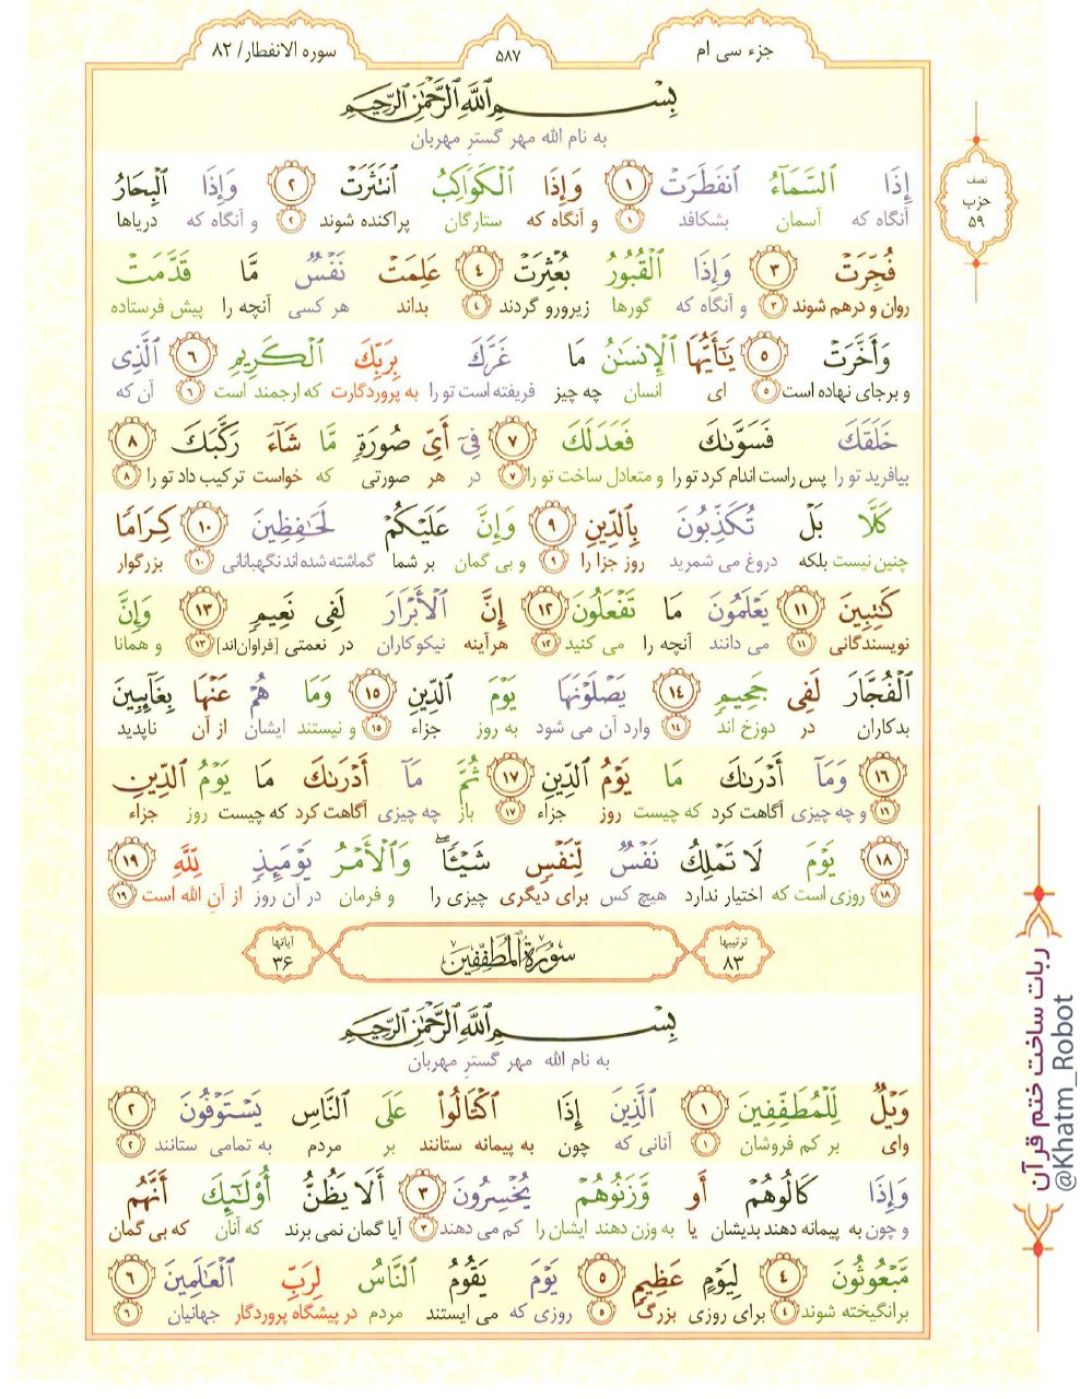 جزء سی ام
۵۸۷
سوره الانفطار/ ۸۲
بِسْمِ ٱللَّهِ ٱلرَّحْمَٰنِ ٱلرَّحِيمِ
به نام الله مهر گستر مهربان
إِذَا ٱلسَّمَآءُ ٱنفَطَرَتْ ۱ وَإِذَا ٱلْكَوَاكِبُ ٱنتَثَرَتْ ۲ وَإِذَا ٱلْبِحَارُ
آنگاه که آسمان بشکافد ۱ و آنگاه که ستارگان پراکنده شوند ۲ و آنگاه که دریاها
فُجِّرَتْ ۳ وَإِذَا ٱلْقُبُورُ بُعْثِرَتْ ۴ عَلِمَتْ نَفْسٌ مَّا قَدَّمَتْ
روان و درهم شوند ۳ و آنگاه که گورها زیرورو گردند ۴ بداند هر کسی آنچه را پیش فرستاده
وَأَخَّرَتْ ۵ يَٰٓأَيُّهَا ٱلْإِنسَٰنُ مَا غَرَّكَ بِرَبِّكَ ٱلْكَرِيمِ ۶ ٱلَّذِى
و برجای نهاده است ۵ ای انسان چه چیز فریفته است تو را به پروردگارت که ارجمند است ۶ آن که
خَلَقَكَ فَسَوَّىٰكَ فَعَدَلَكَ ۷ فِىٓ أَىِّ صُورَةٍ مَّا شَآءَ رَكَّبَكَ ۸
بیافرید تو را پس راست اندام کرد تو را و متعادل ساخت تو را ۷ در هر صورتی که خواست ترکیب داد تو را ۸
كَلَّا بَلْ تُكَذِّبُونَ بِٱلدِّينِ ۹ وَإِنَّ عَلَيْكُمْ لَحَٰفِظِينَ ۱۰ كِرَامًا
چنین نیست بلکه دروغ می شمرید روز جزا را ۹ و بی گمان بر شما گماشته شده اند نگهبانانی ۱۰ بزرگوار
كَٰتِبِينَ ۱۱ يَعْلَمُونَ مَا تَفْعَلُونَ ۱۲ إِنَّ ٱلْأَبْرَارَ لَفِى نَعِيمٍ ۱۳ وَإِنَّ
نویسندگانی ۱۱ می دانند آنچه را می کنید ۱۲ هرآینه نیکوکاران در نعمتی [فراوان‌اند] ۱۳ و همانا
ٱلْفُجَّارَ لَفِى جَحِيمٍ ۱۴ يَصْلَوْنَهَا يَوْمَ ٱلدِّينِ ۱۵ وَمَا هُمْ عَنْهَا بِغَآئِبِينَ
بدکاران در دوزخ اند ۱۴ وارد آن می شود به روز جزاء ۱۵ و نیستند ایشان از آن ناپدید
۱۶ وَمَآ أَدْرَىٰكَ مَا يَوْمُ ٱلدِّينِ ۱۷ ثُمَّ مَآ أَدْرَىٰكَ مَا يَوْمُ ٱلدِّينِ
۱۶ و چه چیزی آگاهت کرد که چیست روز جزاء ۱۷ باز چه چیزی آگاهت کرد که چیست روز جزاء
۱۸ يَوْمَ لَا تَمْلِكُ نَفْسٌ لِّنَفْسٍ شَيْـًٔا ۖ وَٱلْأَمْرُ يَوْمَئِذٍ لِّلَّهِ ۱۹
۱۸ روزی است که اختیار ندارد هیچ کس برای دیگری چیزی را و فرمان در آن روز از آنِ الله است ۱۹
ترتیبها ۸۳
سُورَةُ الْمُطَفِّفِين
آیاتها ۳۶
بِسْمِ ٱللَّهِ ٱلرَّحْمَٰنِ ٱلرَّحِيمِ
به نام الله مهر گسترِ مهربان
وَيْلٌ لِّلْمُطَفِّفِينَ ۱ ٱلَّذِينَ إِذَا ٱكْتَالُوا۟ عَلَى ٱلنَّاسِ يَسْتَوْفُونَ ۲
وای بر کم فروشان ۱ آنانی که چون به پیمانه ستانند بر مردم به تمامی ستانند ۲
وَإِذَا كَالُوهُمْ أَو وَّزَنُوهُمْ يُخْسِرُونَ ۳ أَلَا يَظُنُّ أُو۟لَٰٓئِكَ أَنَّهُم
و چون به پیمانه دهند بدیشان یا به وزن دهند ایشان را کم می دهند ۳ آیا گمان نمی برند که آنان که بی گمان
مَّبْعُوثُونَ ۴ لِيَوْمٍ عَظِيمٍ ۵ يَوْمَ يَقُومُ ٱلنَّاسُ لِرَبِّ ٱلْعَٰلَمِينَ ۶
برانگیخته شوند ۴ برای روزی بزرگ ۵ روزی که می ایستند مردم در پیشگاه پروردگار جهانیان ۶
نصف
حزب
۵۹
ربات ساخت ختم قرآن
@Khatm_Robot